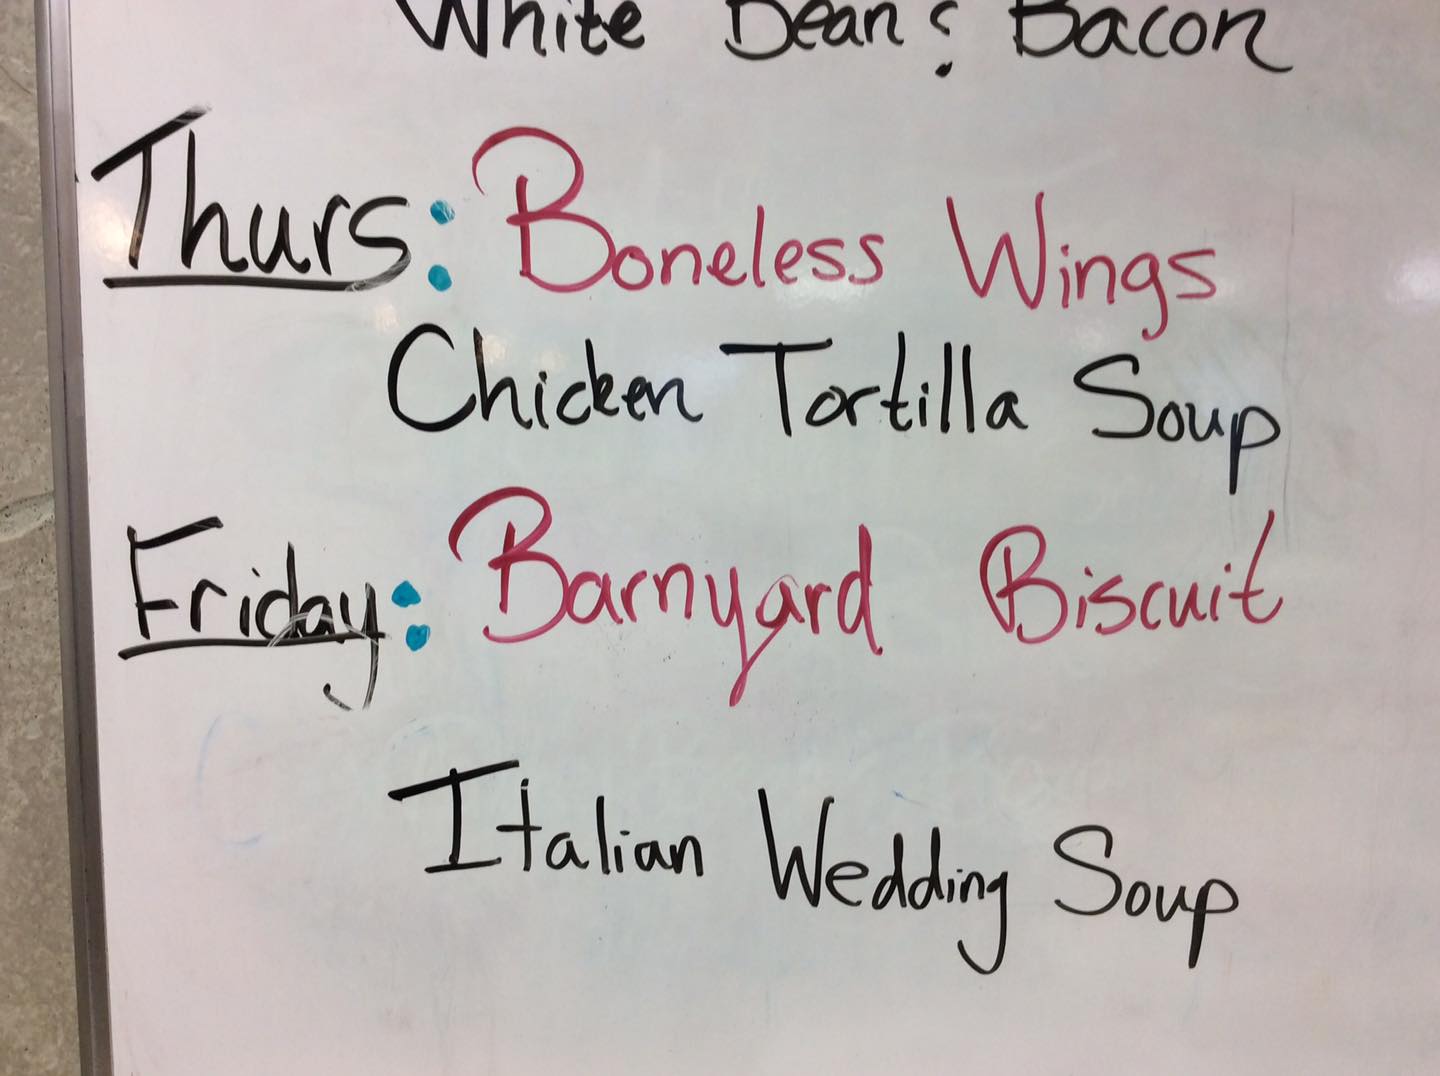 White Bean & Bacon
Thurs: Boneless Wings
Chicken Tortilla Soup
Friday: Barnyard Biscuit
Italian Wedding Soup